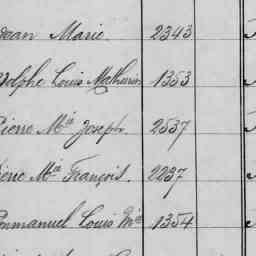 Marie 2343
Adolphe Louis Mathurin 1353
Pierre Mie Joseph 2537
Mie François 2237
Emmanuel Louis Mie 1354